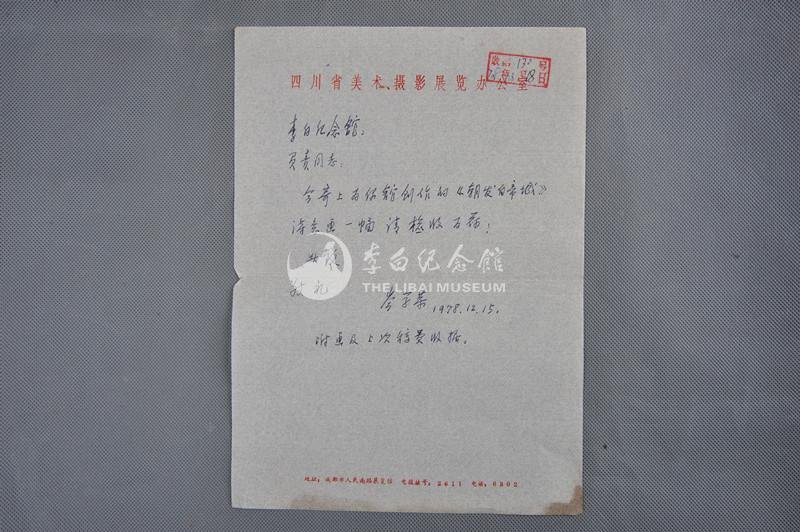 四川省美术、摄影展览办公室
收 130 号
李白纪念馆：
负责同志：
今寄上为你馆创作的《朝发白帝城》
诗意画一幅 请检收为荷！
敬礼
李白纪念馆
THE LIBAI MUSEUM
1978.12.15.
附画及上次稿费收据。
地址：成都市人民南路展览馆 电报挂号：2611 电话：6802